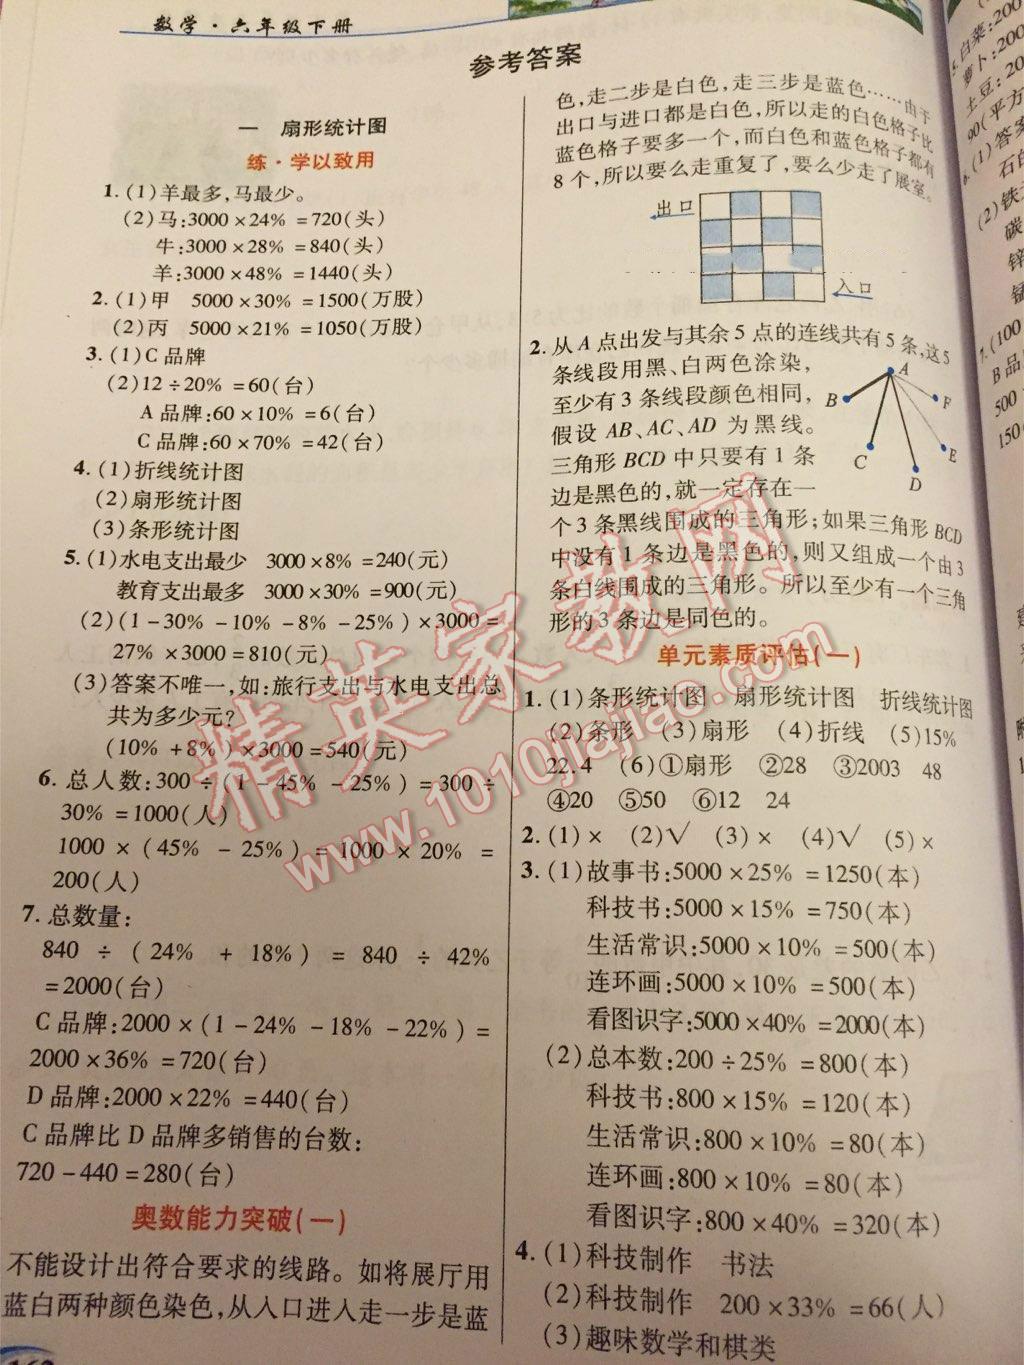 数学·六年级下册
参考答案
一 扇形统计图
练·学以致用
1.(1)羊最多,马最少。
(2)马:3000×24%=720(头)
牛:3000×28%=840(头)
羊:3000×48%=1440(头)
2.(1)甲 5000×30%=1500(万股)
(2)丙 5000×21%=1050(万股)
3.(1)C品牌
(2)12÷20%=60(台)
A品牌:60×10%=6(台)
C品牌:60×70%=42(台)
4.(1)折线统计图
(2)扇形统计图
(3)条形统计图
5.(1)水电支出最少 3000×8%=240(元)
教育支出最多 3000×30%=900(元)
(2)(1-30%-10%-8%-25%)×3000=
27%×3000=810(元)
(3)答案不唯一,如:旅行支出与水电支出总
共为多少元?
(10%+8%)×3000=540(元)
6.总人数:300÷(1-45%-25%)=300÷
30%=1000(人)
1000×(45%-25%)=1000×20%=
200(人)
7.总数量:
840÷(24%+18%)=840÷42%
=2000(台)
C品牌:2000×(1-24%-18%-22%)=
2000×36%=720(台)
D品牌:2000×22%=440(台)
C品牌比D品牌多销售的台数:
720-440=280(台)
奥数能力突破(一)
不能设计出符合要求的线路。如将展厅用
蓝白两种颜色染色,从入口进入走一步是蓝
色,走二步是白色,走三步是蓝色……由于
出口与进口都是白色,所以走的白色格子比
蓝色格子要多一个,而白色和蓝色格子都有
8个,所以要么走重复了,要么少走了展室。
出口
入口
2.从A点出发与其余5点的连线共有5条,这5
条线段用黑、白两色涂染,
至少有3条线段颜色相同,
假设AB、AC、AD为黑线。
三角形BCD中只要有1条
边是黑色的,就一定存在一
个3条黑线围成的三角形;如果三角形BCD
中没有1条边是黑色的,则又组成一个由3
条白线围成的三角形。所以至少有一个三角
形的3条边是同色的。
A
B
F
C
E
D
单元素质评估(一)
1.(1)条形统计图 扇形统计图 折线统计图
(2)条形 (3)扇形 (4)折线 (5)15%
22.4 (6)①扇形 ②28 ③2003 48
④20 ⑤50 ⑥12 24
2.(1)× (2)√ (3)× (4)√ (5)×
3.(1)故事书:5000×25%=1250(本)
科技书:5000×15%=750(本)
生活常识:5000×10%=500(本)
连环画:5000×10%=500(本)
看图识字:5000×40%=2000(本)
(2)总本数:200÷25%=800(本)
科技书:800×15%=120(本)
生活常识:800×10%=80(本)
连环画:800×10%=80(本)
看图识字:800×40%=320(本)
4.(1)科技制作 书法
(2)科技制作 200×33%=66(人)
(3)趣味数学和棋类
精英家教网
www.1010jiajiao.com
5.白菜:200
萝卜:200
土豆:20
90(平方
6.(1)答案
石的
(2)铁
碳
锌
锰
7.(100
B品
500
150(